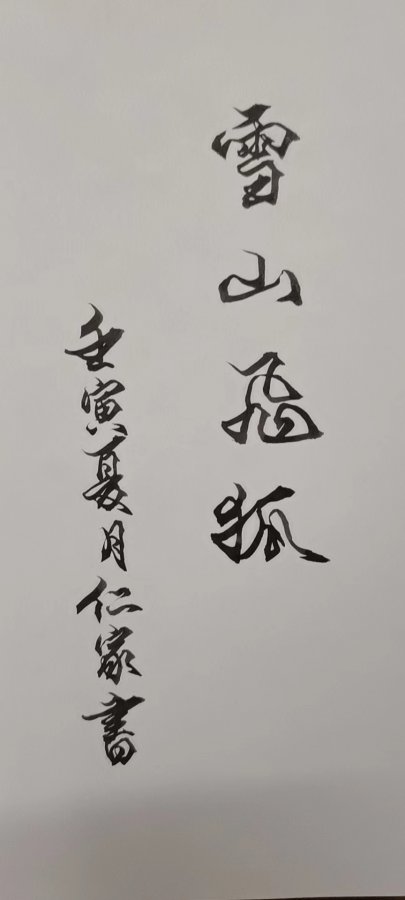 雪山飛狐
壬寅夏月仁家書